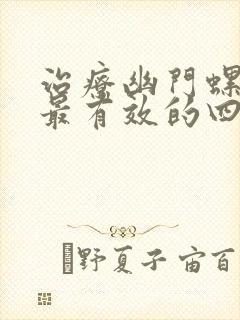 治療幽門螺
最有效的四
野夏子宙百